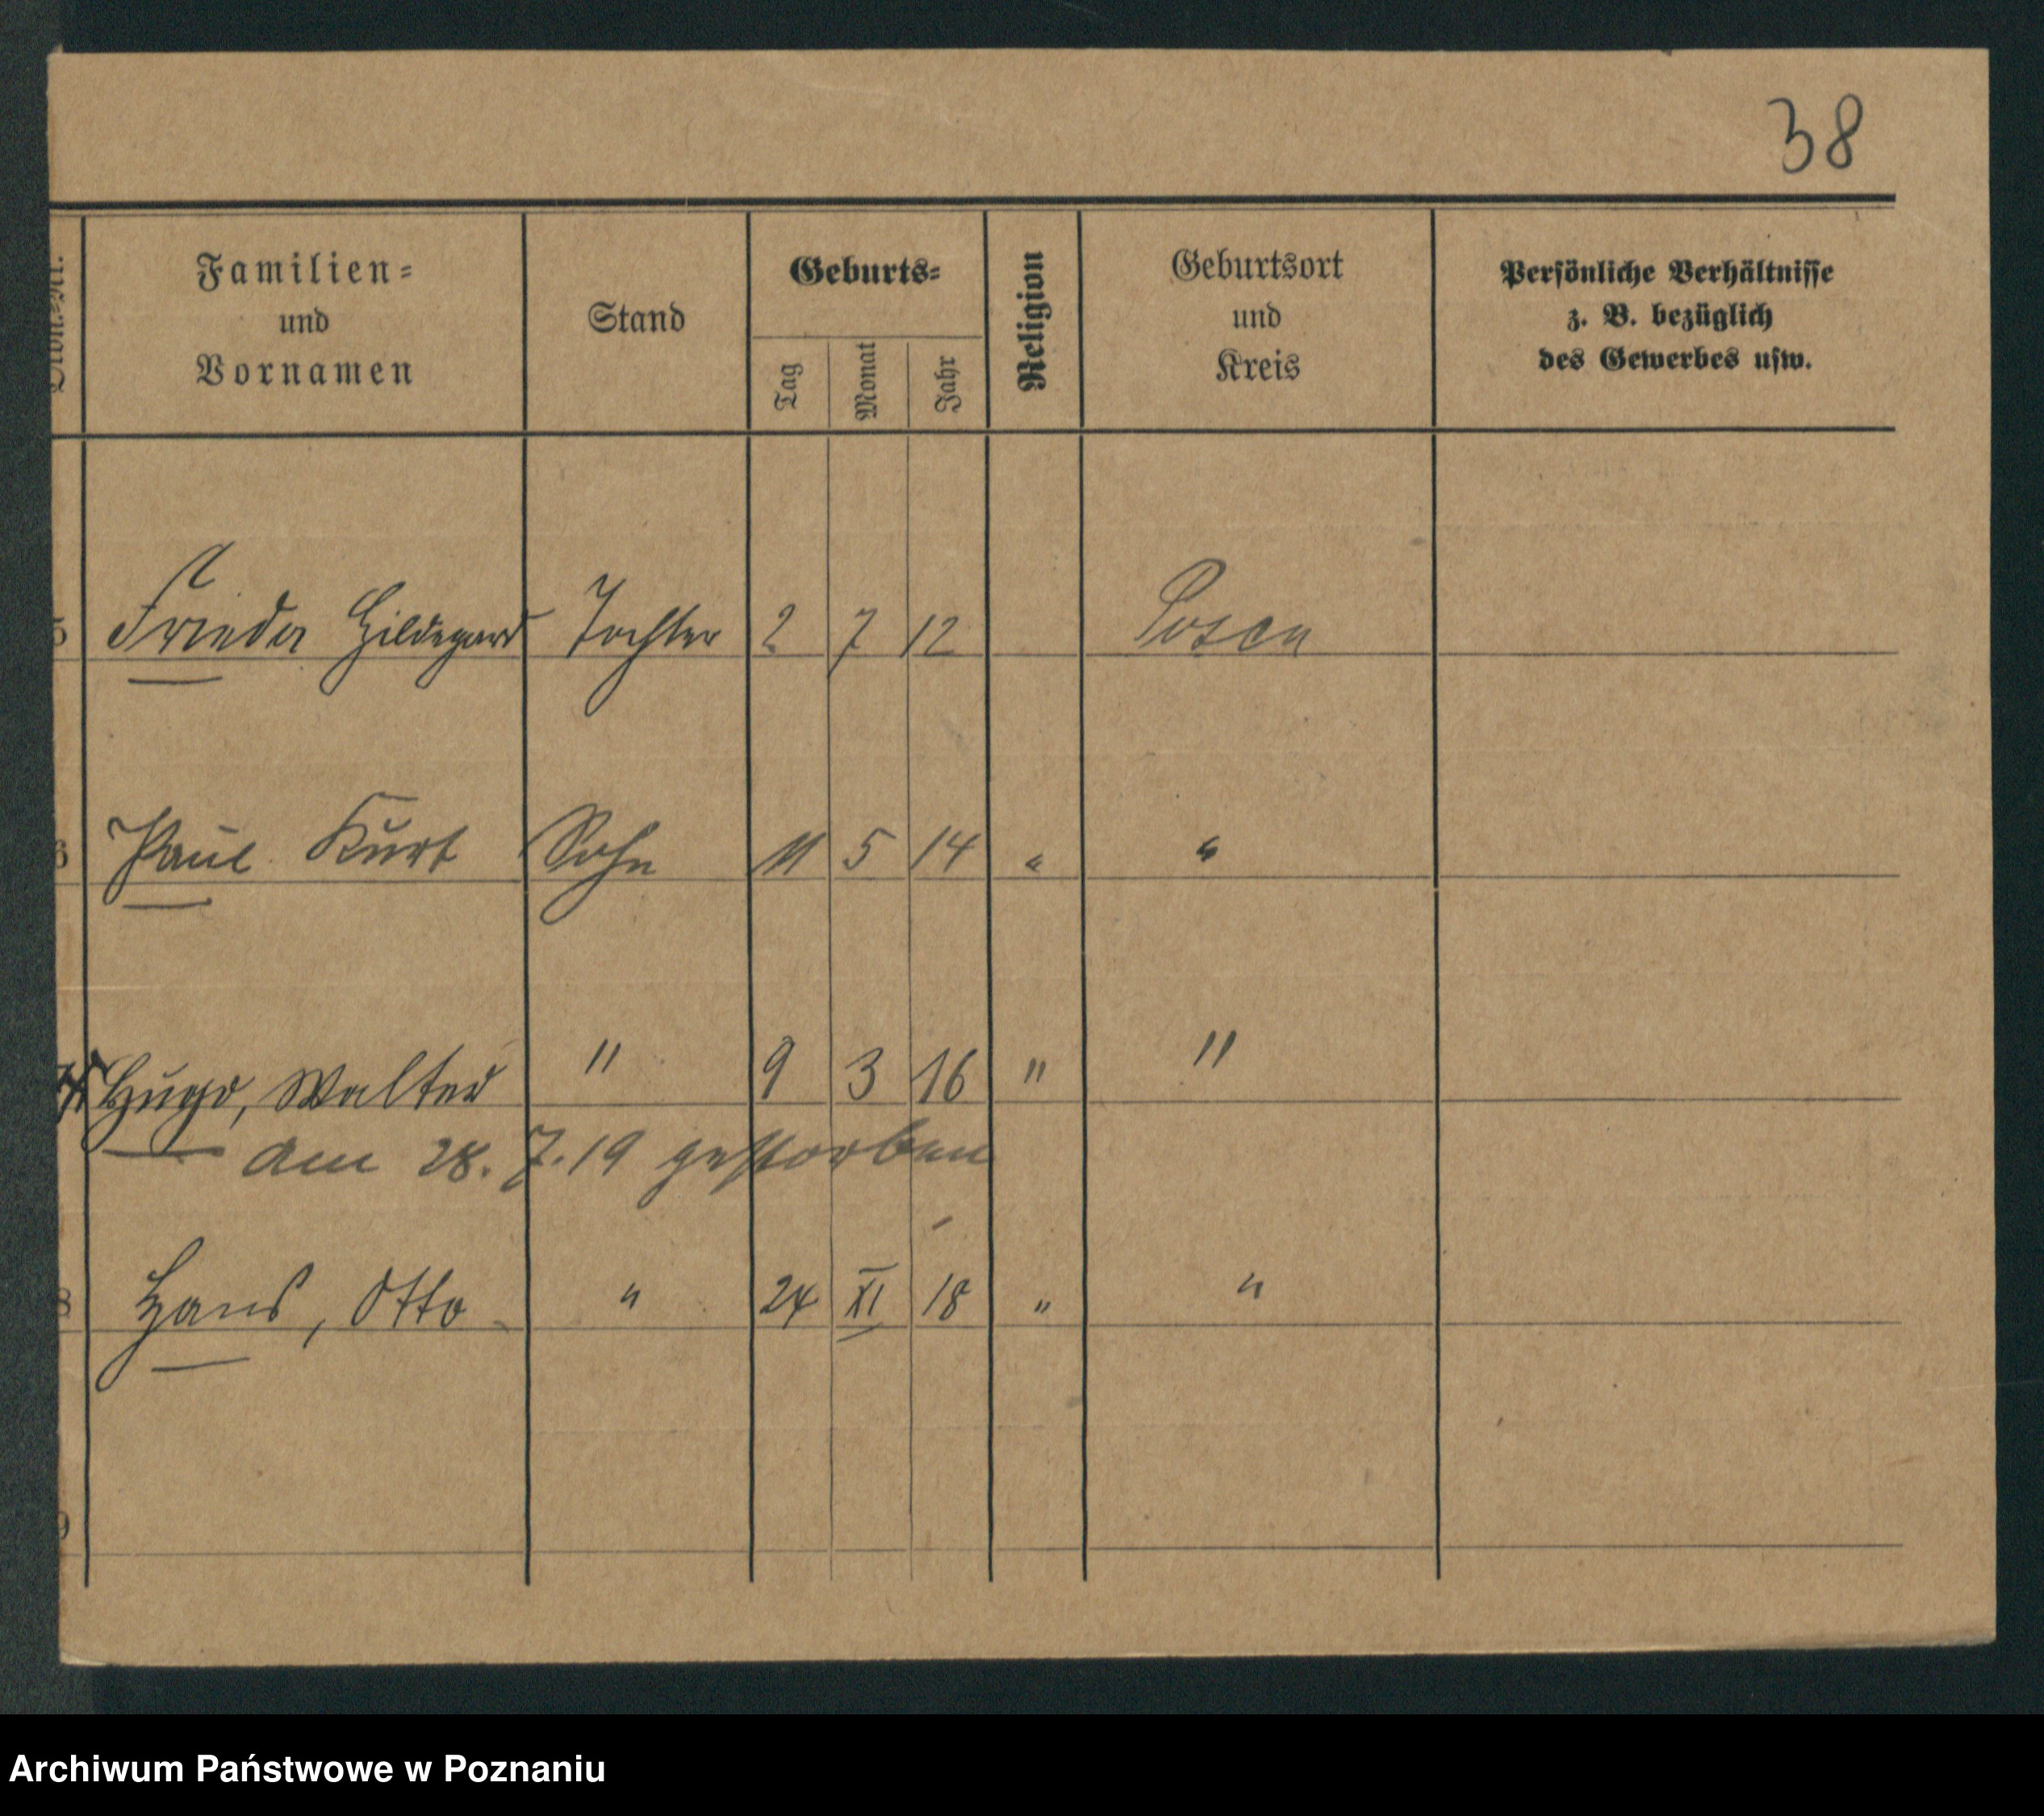 38
Ordn.-Nr.
Familien-
und
Vornamen
Stand
Geburts-
Tag
Monat
Jahr
Religion
Geburtsort
und
Kreis
Persönliche Verhältnisse
z. B. bezüglich
des Gewerbes usw.
5 Frieda Hildegard Tochter 2 7 12 Posen
6 Paul Kurt Sohn 11 5 14 " "
Hugo, Walter " 9 3 16 " "
am 28. 7. 19 gestorben
8 Hans, Otto " 24 XI 18 " "
9
Archiwum Państwowe w Poznaniu